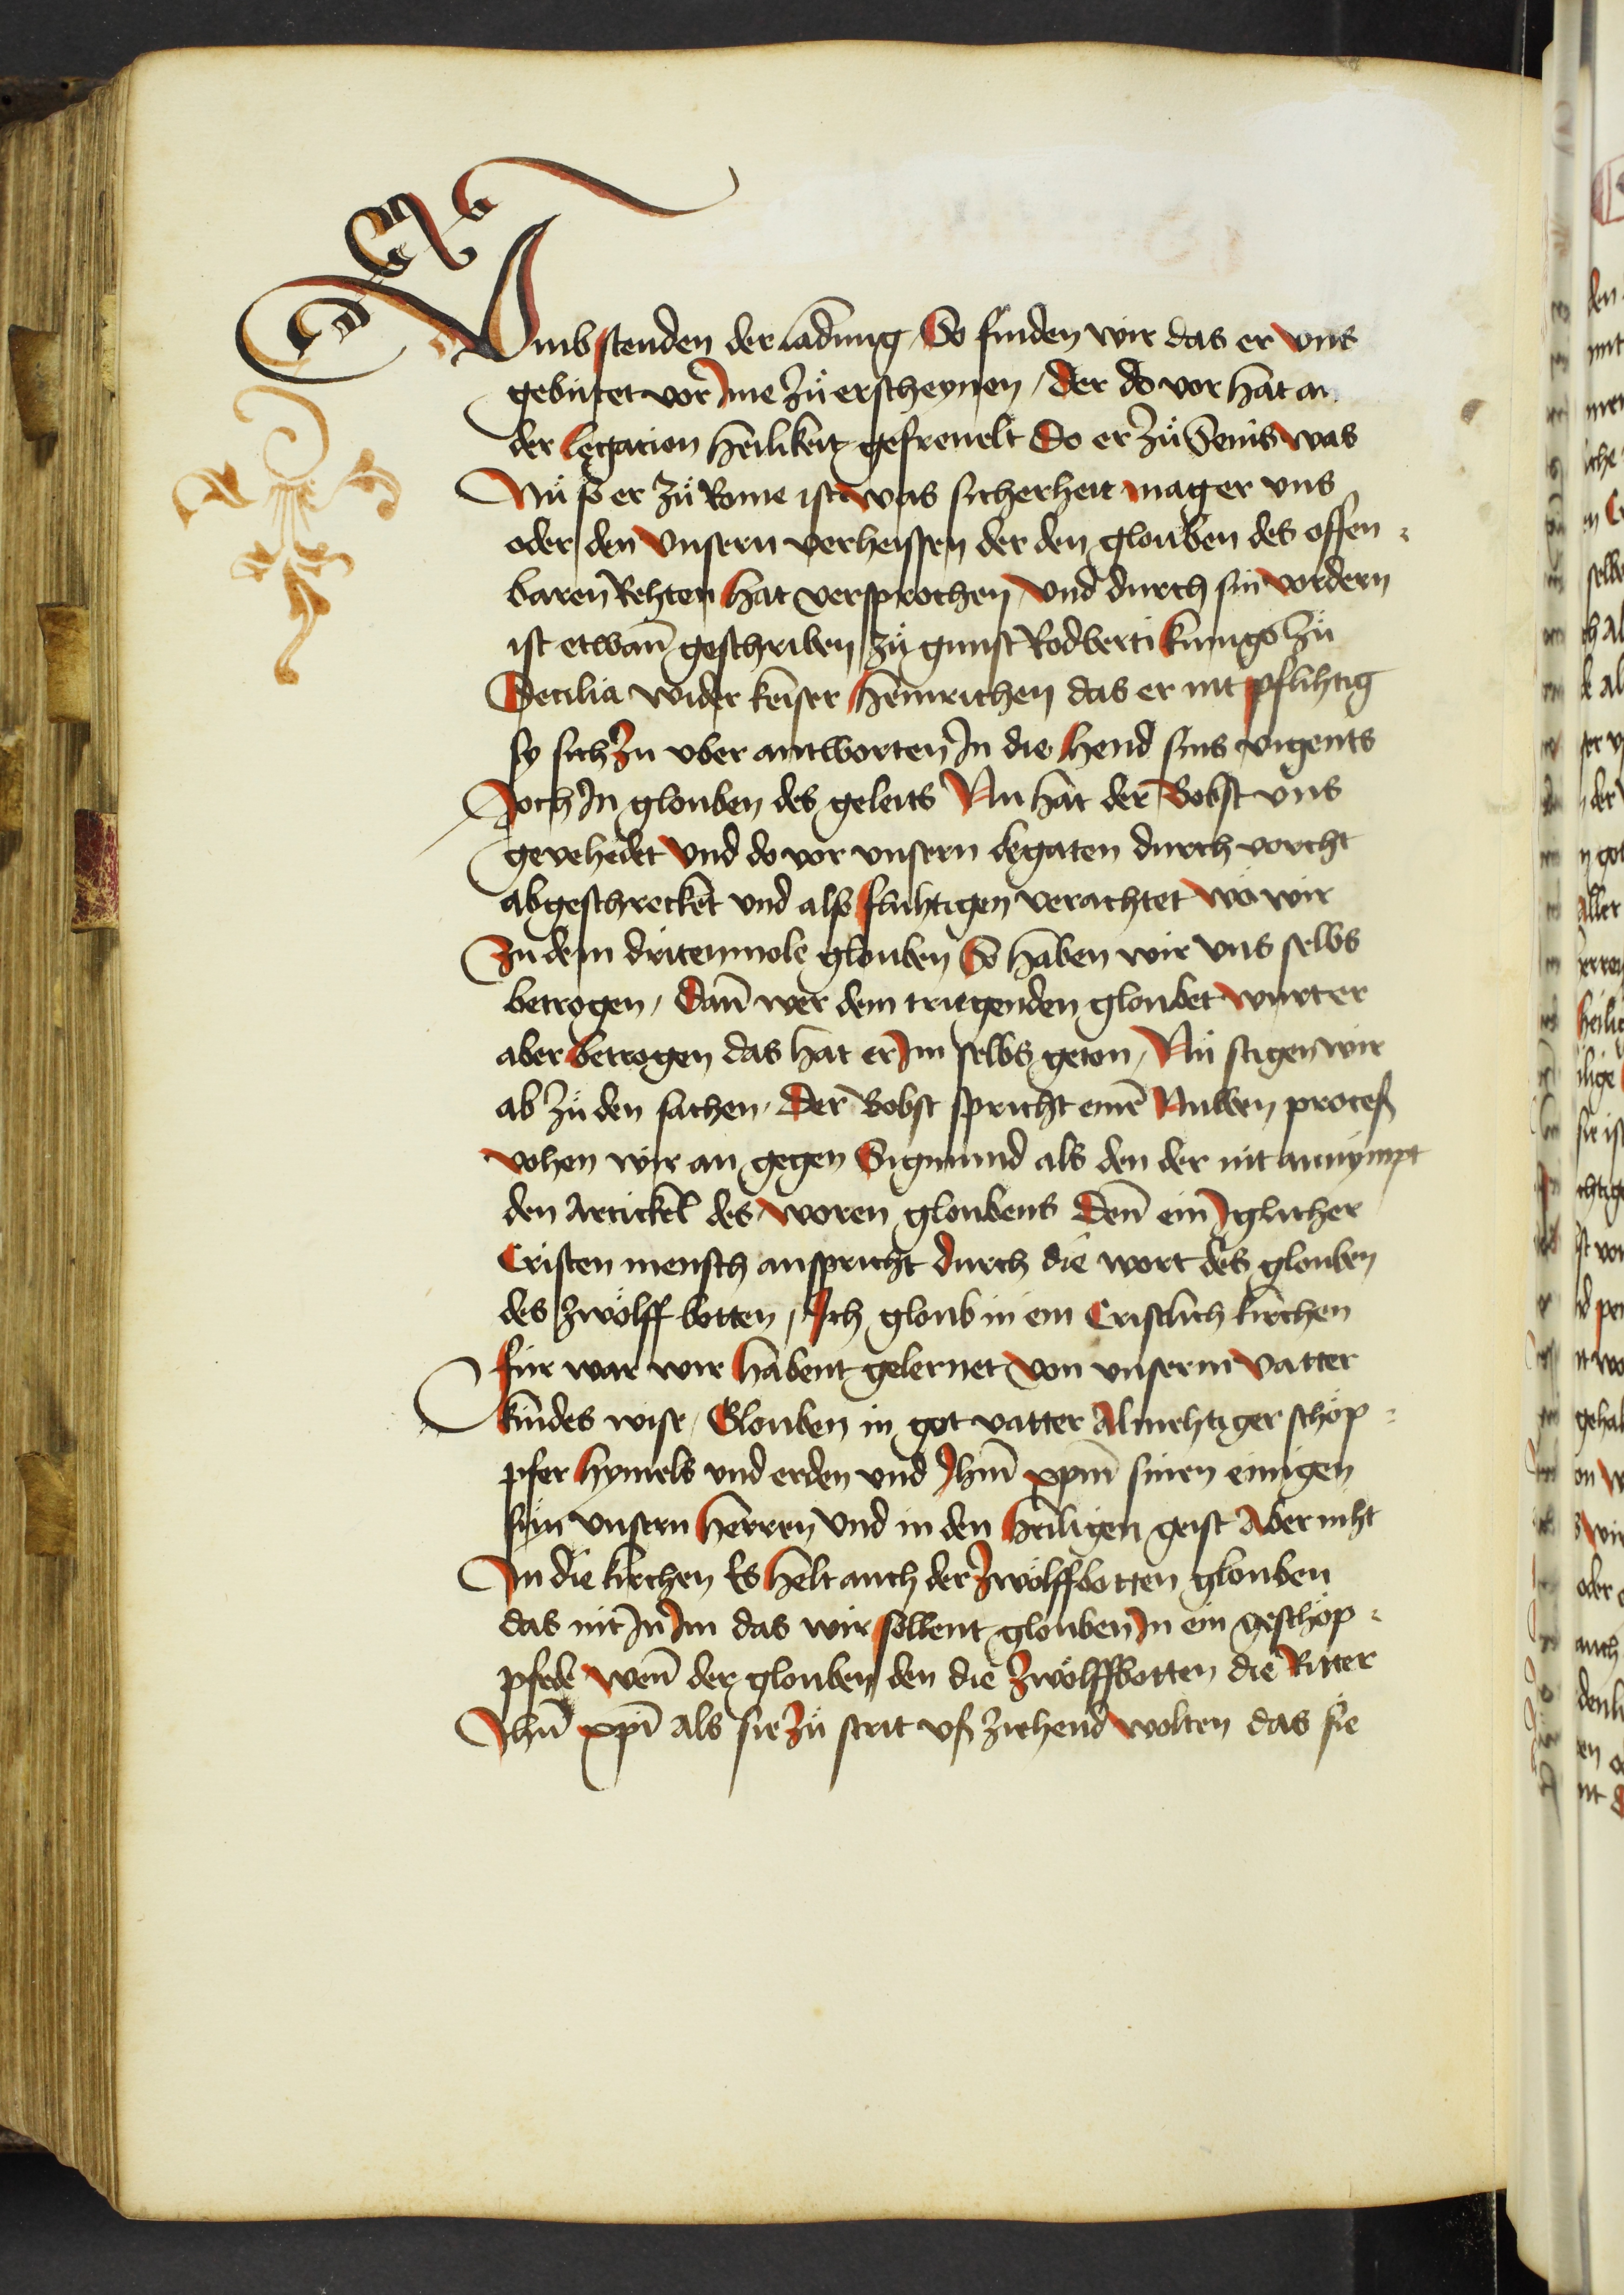 Vmb stenden der ladung / So finden wir das er vns
gebútet vor Ime zů erscheynen / der do vor hat an
der legacion heilikeit gefreuelt Do er zů Senis was
Nů so er zů Rome ist was sicherheit mag er vns
oder den vnsern verheissen der den glouben des offen :
baren Rehten hat versprochen / vnd durch sin vordern
ist etwan̄ geschriben zů gunst Rodberti kunigs zů
Cecilia wider keiser heinrichen das er nit pflihtig
sy sich zu vber antworten In die hend sins vigents
Joch In glouben des geleits Nu hat der Bobst vns
gevehedet vnd do vor vnsern legaten durch vorcht
abgeschreckt vnd als fluhtigen verachtet wo wir
Zu dem dritenmole glouben So haben wir vns selbs
betrogen / Dan̄ wer dem triegenden gloubet wurt er
aber betrogen das hat er Im selbs geton / Nů stigen wir
ab zů den sachen / Der Bobst spricht eine Nuwen process
vohen wir an gegen Sigmund als den der nit annympt
den Artickel des woren gloubens den̄ ein Iglicher
Cristen mensch anspricht durch die wort des glouben
des zwölff botten / Ich gloub in ein Cristlich kirchen
für war wir habent gelernet von vnserm vatter
kindes wise / Glouben in got vatter Almehtiger schöp :
pfer hymels vnd erden vnd Jhm̄ xpm̄ sinen einigen
sün vnsern herren vnd in den heiligen geist Aber niht
In die kirchen Es helt auch der zwölffbotten glouben
das nit In Im das wir sollent glouben In ein geschöp :
pfede wen̄ der glouben den die zwölffbotten die Ritter
Jhū xpī als sie zů strit vss ziehend wolten das sie